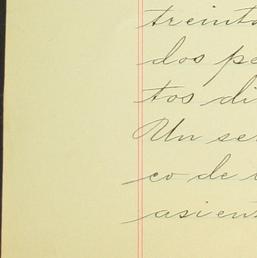 treinta
dos pe
tos di
Un se
co de
asient